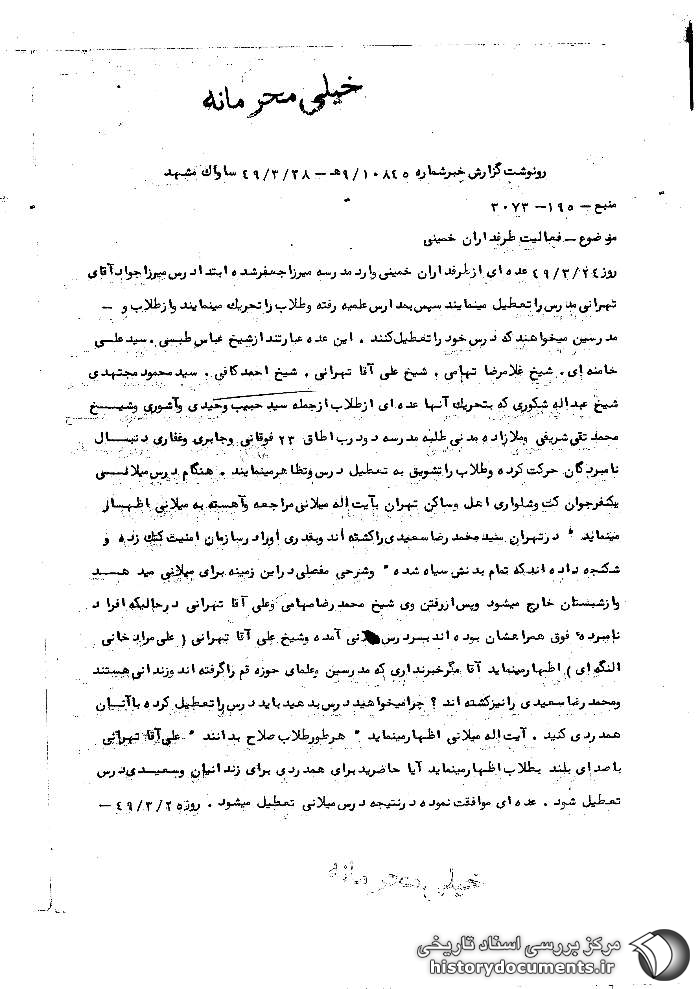 خیلی محرمانه
رونوشت گزارش خبر شماره ۹/۱۰۸۴۵هـ – ۴۹/۳/۲۸ ساواک مشهد
منبع – ۱۹۵ – ۳۰۷۳
موضوع – فعالیت طرفداران خمینی
روز ۴۹/۳/۲۴ عده ای از طرفداران خمینی وارد مدرسه میرزا جعفر شده ابتدا درس میرزا جواد آقای
تهرانی مدرس را تعطیل مینمایند سپس بمدارس علمیه رفته وطلاب را تحریک مینمایند و از طلاب و –
مدرسین میخواهند که درس خود را تعطیل کنند . این عده عبارتند از شیخ عباس طبسی . سید علی
خامنه ای . شیخ غلامرضا تهامی . شیخ علی آقا تهرانی . شیخ احمد کافی . سید محمود مجتهدی
شیخ عبداله شکوری که بتحریک آنها عده ای از طلاب از جمله سید حبیب وحیدی و آشوری و شیخ
محمد تقی شریفی وملازاده مدنی طلبه مدرسه دو درب اطاق ۲۳ فوقانی وجابری وغفاری دنبال
نامبردگان حرکت کرده وطلاب را تشویق به تعطیل درس وتظاهر مینمایند . هنگام درس میلانی
یکنفر جوان کت وشلواری اهل وساکن تهران بآیت اله میلانی مراجعه وآهسته به میلانی اظهار
مینماید " در تهران سید محمد رضا سعیدی را کشته اند وبقدری او را در سازمان امنیت کتک زده و
شکنجه داده اند که تمام بدنش سیاه شده " وشرحی مفصلی در این زمینه برای میلانی میدهد
واز شبستان خارج میشود وپس از رفتن وی شیخ محمد رضا مهامی وعلی آقا تهرانی در حالیکه افراد
نامبرده فوق همراهشان بوده اند بسر درس میلانی آمده وشیخ علی آقا تهرانی ( علی مراد خانی
النگه ای ) اظهار مینماید آقا مگر خبر نداری که مدرسین وعلمای حوزه قم را گرفته اند وزندانی هستند
ومحمد رضا سعیدی را نیز کشته اند ؟ چرا میخواهید درس بدهید باید درس را تعطیل کرده با آنان
همدردی کنید . آیت اله میلانی اظهار مینماید " هر طور طلاب صلاح بدانند " علی آقا تهرانی
با صدای بلند بطلاب اظهار مینماید آیا حاضرید برای همدردی برای زندانیان وسعیدی درس
تعطیل شود . عده ای موافقت نموده در نتیجه درس میلانی تعطیل میشود . روز ۴۹/۳/۲۵ –
خیلی محرمانه
مرکز بررسی اسناد تاریخی
historydocuments.ir